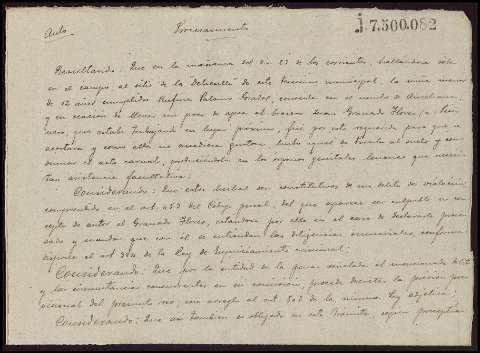 Auto. Procesamiento j 7.500.082
Resultando: Que en la mañana del dia 23 de los corrientes, hallandose sola
en el campo, al sitio de la "Dehesilla" de este termino municipal la niña menor
de 12 años cumplidos Rufina Palomo Grados, conocida en el mundo de Aureliana,
y en ocasion de llevar un poco de agua al Juan Granado Flores, (a)
que estaba trabajando en lugar próximo, fué por este requerida para que se
acostara y como ella no accediera gustosa, hubo aquel de tirarla al suelo y con-
el acto carnal, produciendola en los organos genitales lesiones que necesi-
tan asistencia facultativa;
Considerando: Que estos hechos son constitutivos de un delito de violación
comprendido en el art. 453 del Codigo penal, del que aparece ser culpable en con-
cepto de autor el Granado Flores, estandose por ello en el caso de declararle proce-
sado y mandar que con él se entiendan las diligencias sucesivas, conforme
dispone el art. 384 de la Ley de Enjuiciamiento criminal;
Considerando: Que por la entidad de la pena señalada al mencionado delito
y las circunstancias concurrentes en su comision, procede decretar la prision pro-
visional del presunto reo, con arreglo al art. 503 de la misma Ley adjetiva;
Considerando: Que asi tambien es obligado en este tramite, segun preceptua